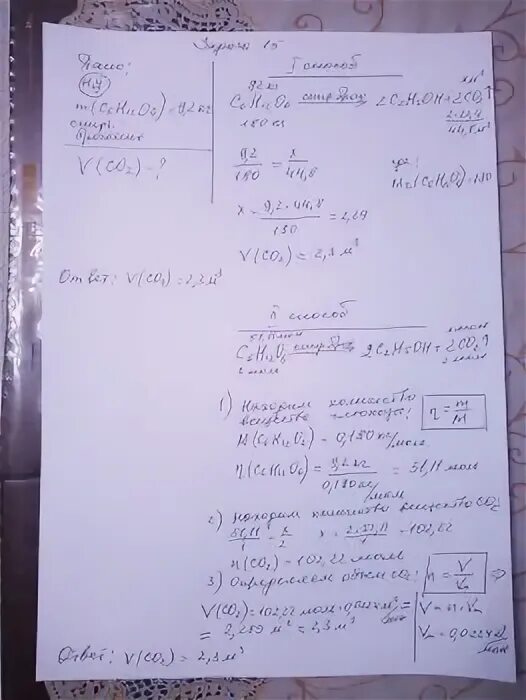 Задача 15
Дано:
н.у
m(C₆H₁₂O₆) = 9,2 кг
V(CO₂) - ?
I способ
9,2 кг x м³
C₆H₁₂O₆ → 2C₂H₅OH + 2CO₂↑
180 кг 2·22,4
44,8 м³
9,2/180 = x/44,8
Mr(C₆H₁₂O₆) = 180
x = 9,2·44,8/180 = 2,29
V(CO₂) = 2,3 м³
Ответ: V(CO₂) = 2,3 м³
II способ
51,11 моль x моль
C₆H₁₂O₆ → 2C₂H₅OH + 2CO₂↑
1 моль 2 моль
1) Находим количество
вещества глюкозы: n = m/M
M(C₆H₁₂O₆) = 0,180 кг/моль
n(C₆H₁₂O₆) = 9,2 кг/0,180 кг/моль = 51,11 моль
2) Находим количество вещества CO₂
51,11/1 = x/2 x = 2·51,11/1 = 102,22
n(CO₂) = 102,22 моль
3) Определяем объем CO₂: n = V/Vm ⇒
V(CO₂) = 102,22 моль · 0,0224 м³/моль = V = n·Vm
= 2,289 м³ = 2,3 м³ Vm = 0,0224 м³/моль
Ответ: V(CO₂) = 2,3 м³